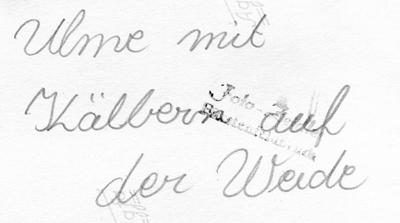 Ulme mit
Kälbern auf
der Weide